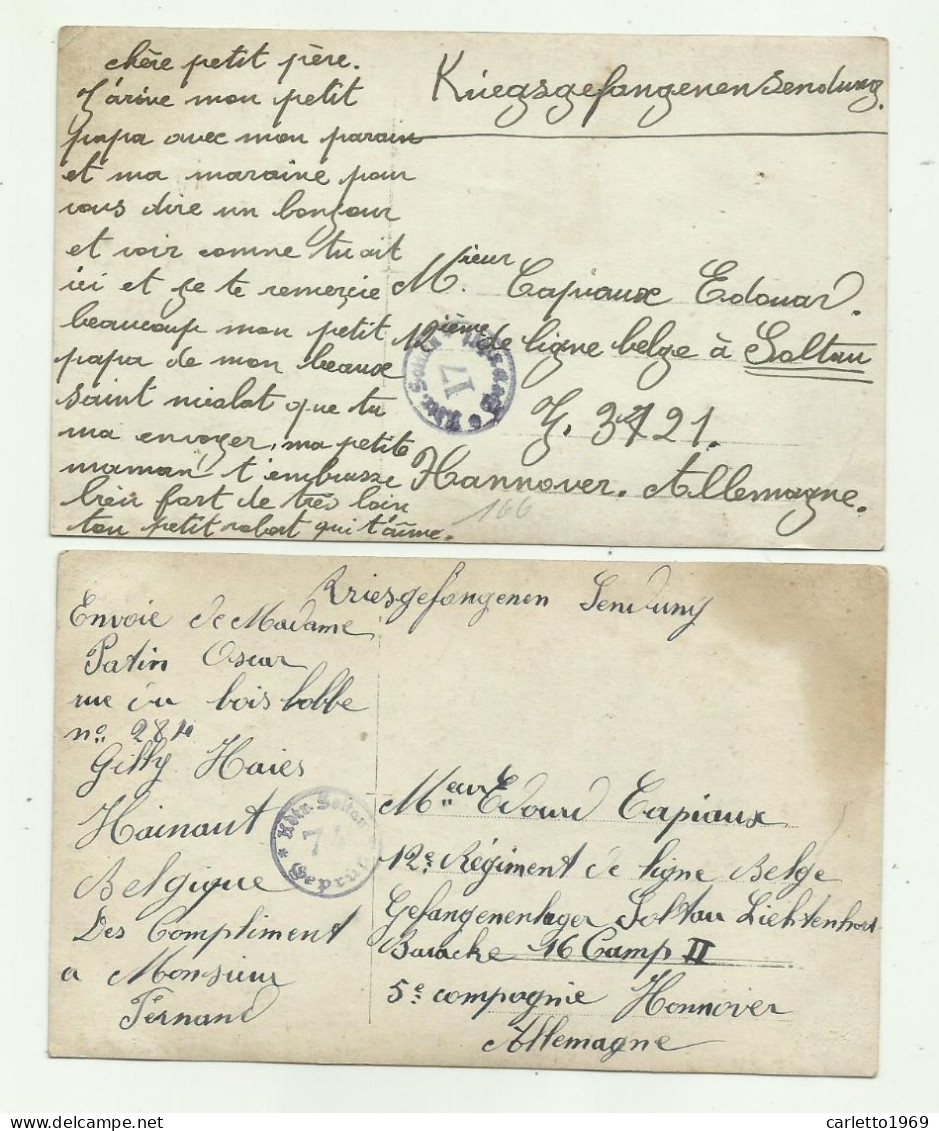 chère petit père.
J'arive mon petit
papa avec mon parain
et ma maraine pour
vous dire un bonjour
et voir comme tu ait
ici et je te remercie
beaucoup mon petit
papa de mon beaux
saint nicolat que tu
ma envoyer, ma petite
maman t'embrasse
bien fort de très loin
ton petit robert qui t'aime.
Kriegsgefangenensendung.
Mr. ieur Capiaux Edouar.
12ième de ligne belge à Soltau
3721.
Hannover. Allemagne.
166
Kdtr. Soltau
17
Geprüft
Kriesgefangenen Senduny
Envoie de Madame
Patin Oscar
rue du bois lobbe
no 281
Gilly Haies
Hainaut
Belgique
Des Compliment
a Monsieur
Fernand
Kdtr. Soltau
74
Geprüft
Meur Edourd Capiaux
12e Régiment de ligne Belge
Gefangenenlager Soltau Lichtenhorst
Baracke 16 Camp II
5e compagnie Honnover
Allemagne
carletto1969